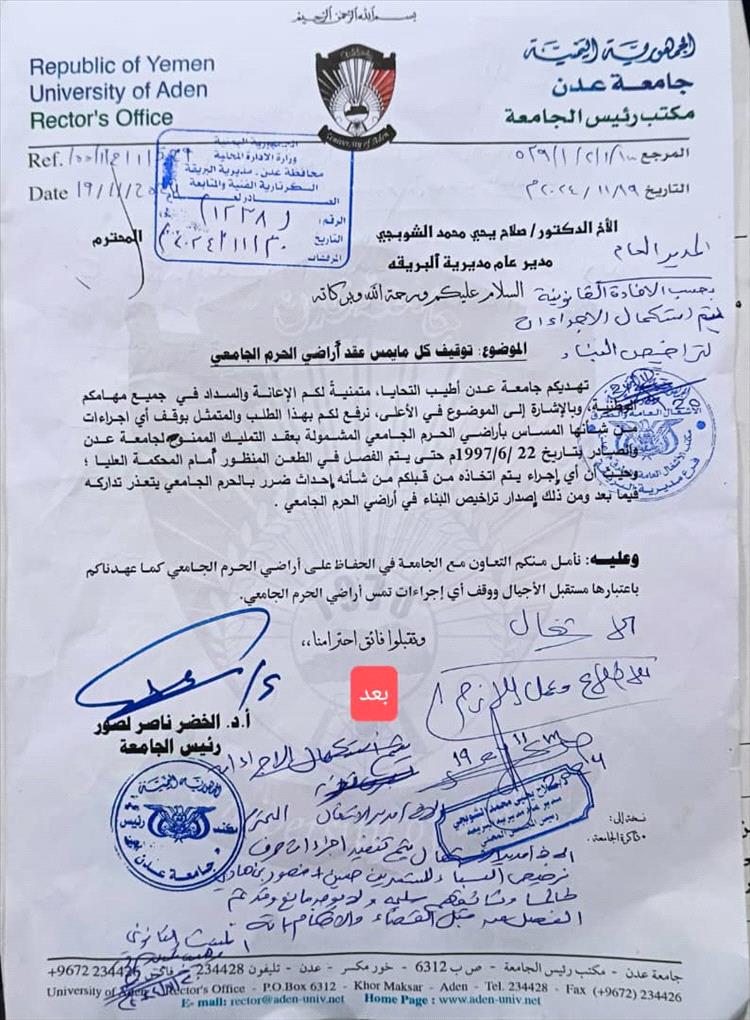 بسم الله الرحمن الرحيم
الجمهورية اليمنية
جامعة عدن
مكتب رئيس الجامعة
Republic of Yemen
University of Aden
Rector's Office
University of Aden
Ref.
المرجع
Date 19/11/
التاريخ ٢٠٢٤/١١/١٩م
الجمهورية اليمنية
وزارة الإدارة المحلية
محافظة عدن - مديرية البريقة
السكرتارية الفنية والمتابعة
الرقم: (١٢٣٨)
التاريخ
المرفقات
الأخ الدكتور/ صلاح يحي محمد الشوبجي
المحترم
مدير عام مديرية البريقه
السلام عليكم ورحمة الله وبركاته
المدير العام
بحسب الافادة القانونية
يتم استكمال الاجراءات
لتراخيص البناء
الموضوع: توقيف كل مايمس عقد أراضي الحرم الجامعي
تهديكم جامعة عدن أطيب التحايا، متمنية لكم الإعانة والسداد في جميع مهامكم
الوطنية، وبالإشارة إلى الموضوع في الأعلى، نرفع لكم بهذا الطلب والمتمثل بوقف أي اجراءات
من شأنها المساس بأراضي الحرم الجامعي المشمولة بعقد التمليك الممنوح لجامعة عدن
والصادر بتاريخ 22 /6/1997م حتى يتم الفصل في الطعن المنظور أمام المحكمة العليا ؛
وحيث أن أي إجراء يتم اتخاذه من قبلكم من شأنه إحداث ضرر بالحرم الجامعي يتعذر تداركه
فيما بعد ومن ذلك إصدار تراخيص البناء في أراضي الحرم الجامعي .
وعليه: نأمل منكم التعاون مع الجامعة في الحفاظ على أراضي الحرم الجامعي كما عهدناكم
باعتبارها مستقبل الأجيال ووقف أي إجراءات تمس أراضي الحرم الجامعي.
وتقبلوا فائق احترامنا،،
الاشغال
للاطلاع وعمل اللازم
بعد
أ.د. الخضر ناصر لصور
رئيس الجامعة
يتم استكمال الاجراءات
د/صلاح يحيى محمد الشوبجي
مدير عام مديرية البريقة
رئيس المجلس المحلي
الجمهورية اليمنية
مكتب رئيس
جامعة عدن
نسخة إلى:
• ذاكرة الجامعة.
الاخ مدير الاشغال يتم تنفيذ اجراءات صرف
ترخيص البناء
طالما وثائقهم سليمه ولا يوجد مانع وقد تم
الفصل فيه من قبل القضاء
جامعة عدن - مكتب رئيس الجامعة - ص ب 6312 - خور مكسر - عدن - تليفون 234428 - فاكس 234426 9672+
University of Aden - Rector's Office - P.O.Box 6312 - Khor Maksar - Aden - Tel. 234428 - Fax (+9672) 234426
E- mail: rector@aden-univ.net Home Page : www.aden-univ.net